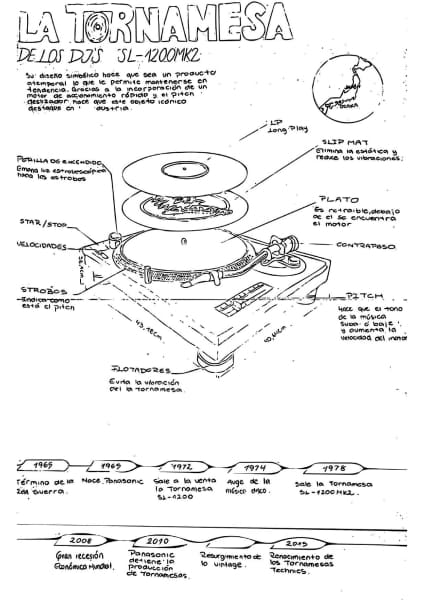 LA TORNAMESA
DE LOS DJ'S SL-1200MK2
Su diseño simbólico hace que sea un producto
atemporal lo que le permite mantenerse en
tendencia. Gracias a la incorporación de un
motor de accionamiento rápido y el pitch
deslizador hace que este objeto icónico
destaque en
ustria.
Japón
Osaka
LP
Long Play
SLIP MAT
Elimina la estática y
reduce las vibraciones.
PERILLA DE ENCENDIDO
hacia los estrobos
PLATO
Es retraible, debajo
de el se encuentra
el motor
STAR/STOP
VELOCIDADES
CONTRAPESO
STROBOS
Indica como
está el pitch
PITCH
Hace que el tono
de la música
suba o baje
y aumenta la
velocidad del motor
FLOTADORES
Evita la vibración
en la tornamesa.
1965
Término de la
2da guerra.
1965
Nace Panasonic
1972
Sale a la venta
la Tornamesa
SL-1200
1974
Auge de la
música disco.
1978
Sale la Tornamesa
SL-1200MK2.
2008
Gran recesión
Económica Mundial.
2010
Panasonic
detiene la
producción
de Tornamesas.
Resurgimiento de
lo vintage.
2015
Renacimiento de
las Tornamesas
Technics.